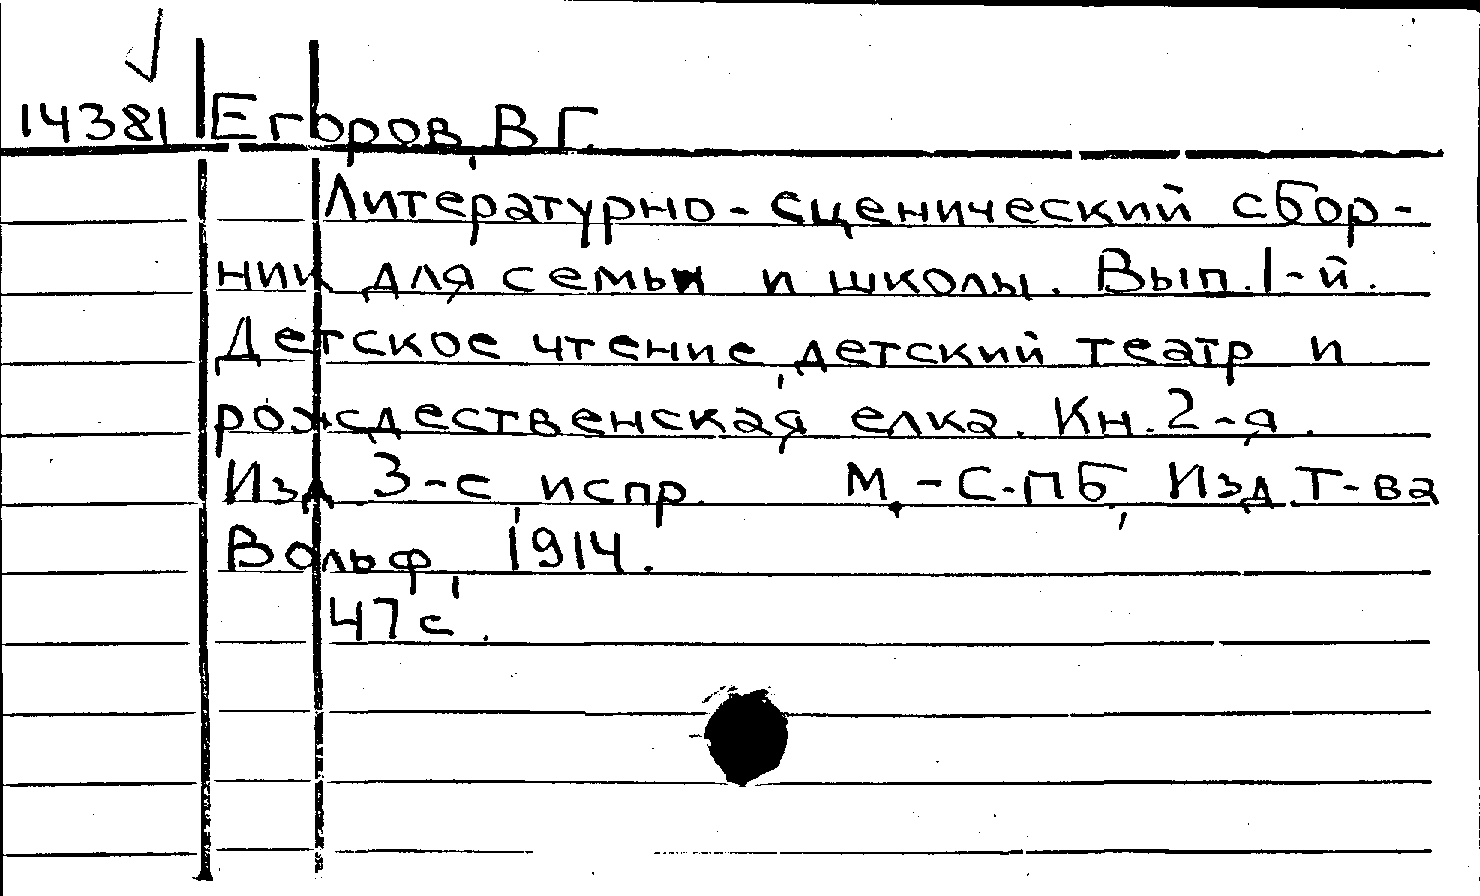 14381 Егоров, В Г.
Литературно-сценический сбор-
ник для семьи и школы. Вып. 1-й.
Детское чтение, детский театр и
рождественская елка. Кн. 2-я.
Изд 3-е, испр. М.-С.-ПБ, Изд. Т-ва
Вольф, 1914.
47 с.